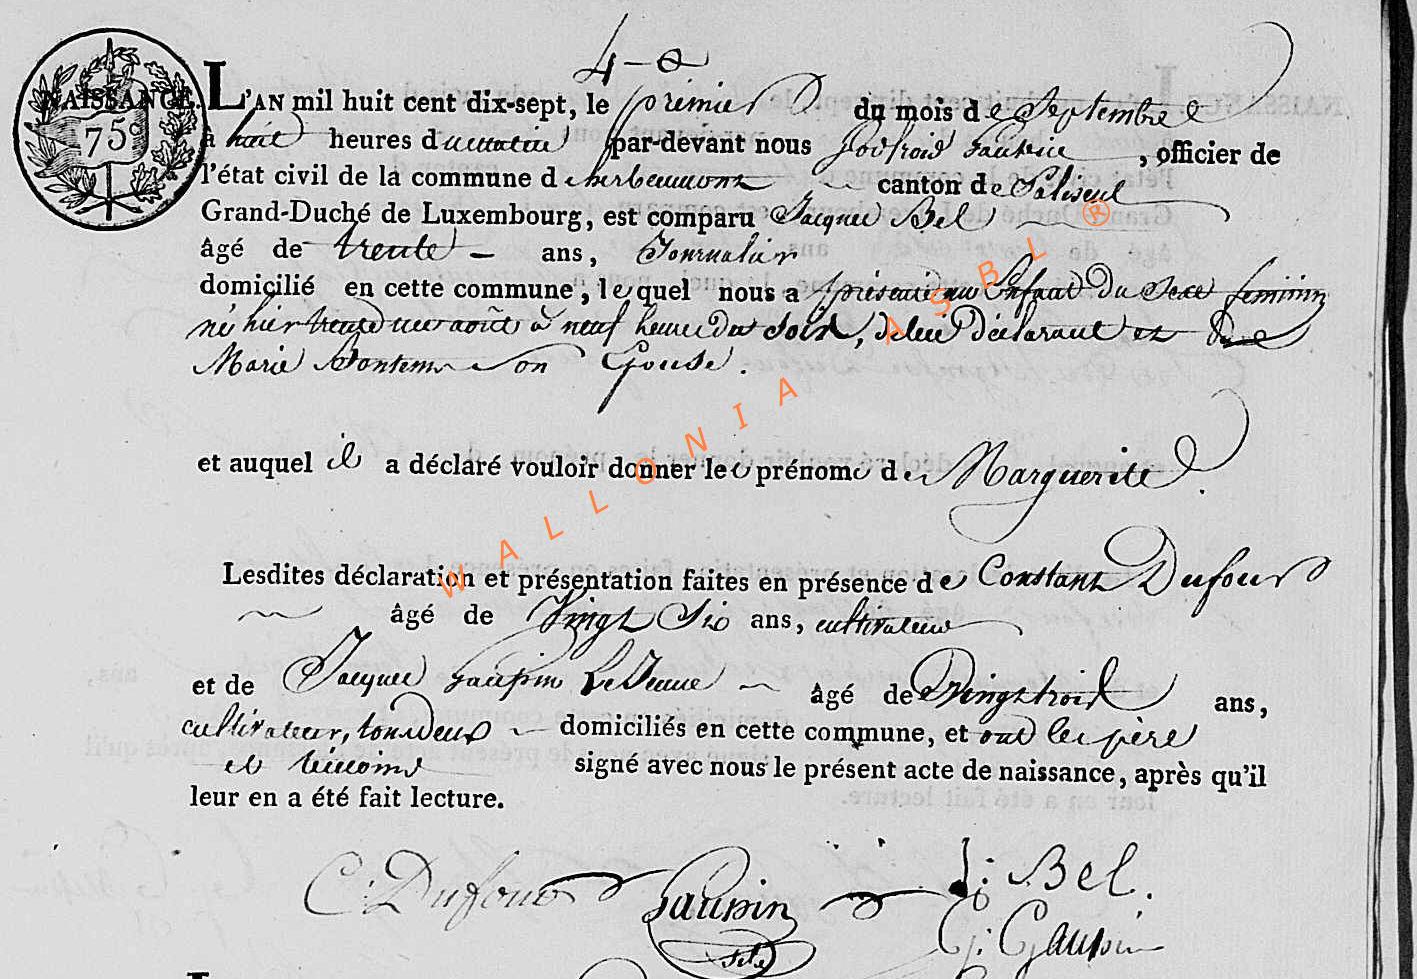 4
NAISSANCE.
75c
L'AN mil huit cent dix-sept, le premier du mois de Septembre
à huit heures du matin par-devant nous Godfroid Gaupin, officier de
l'état civil de la commune d'herbeumont canton de Paliseul
Grand-Duché de Luxembourg, est comparu Jacques Bel
âgé de trente ans, Journalier
domicilié en cette commune, lequel nous a présenté un Enfant du Sexe feminin
né hier trente un août à neuf heures du Soir, de lui déclarant et de
Marie Pontem Son Epouse.
et auquel il a déclaré vouloir donner le prénom de Marguerite.
Lesdites déclaration et présentation faites en présence de Constant Dufour
âgé de Vingt Six ans, cultivateur
et de Jacques Gaupin Le Jeune âgé de Vingt trois ans,
cultivateur, domiciliés en cette commune, et ont les père
et témoins signé avec nous le présent acte de naissance, après qu'il
leur en a été fait lecture.
C: Dufour Gaupin J: Bel.
G: Gaupin
WALLONIA ASBL ®